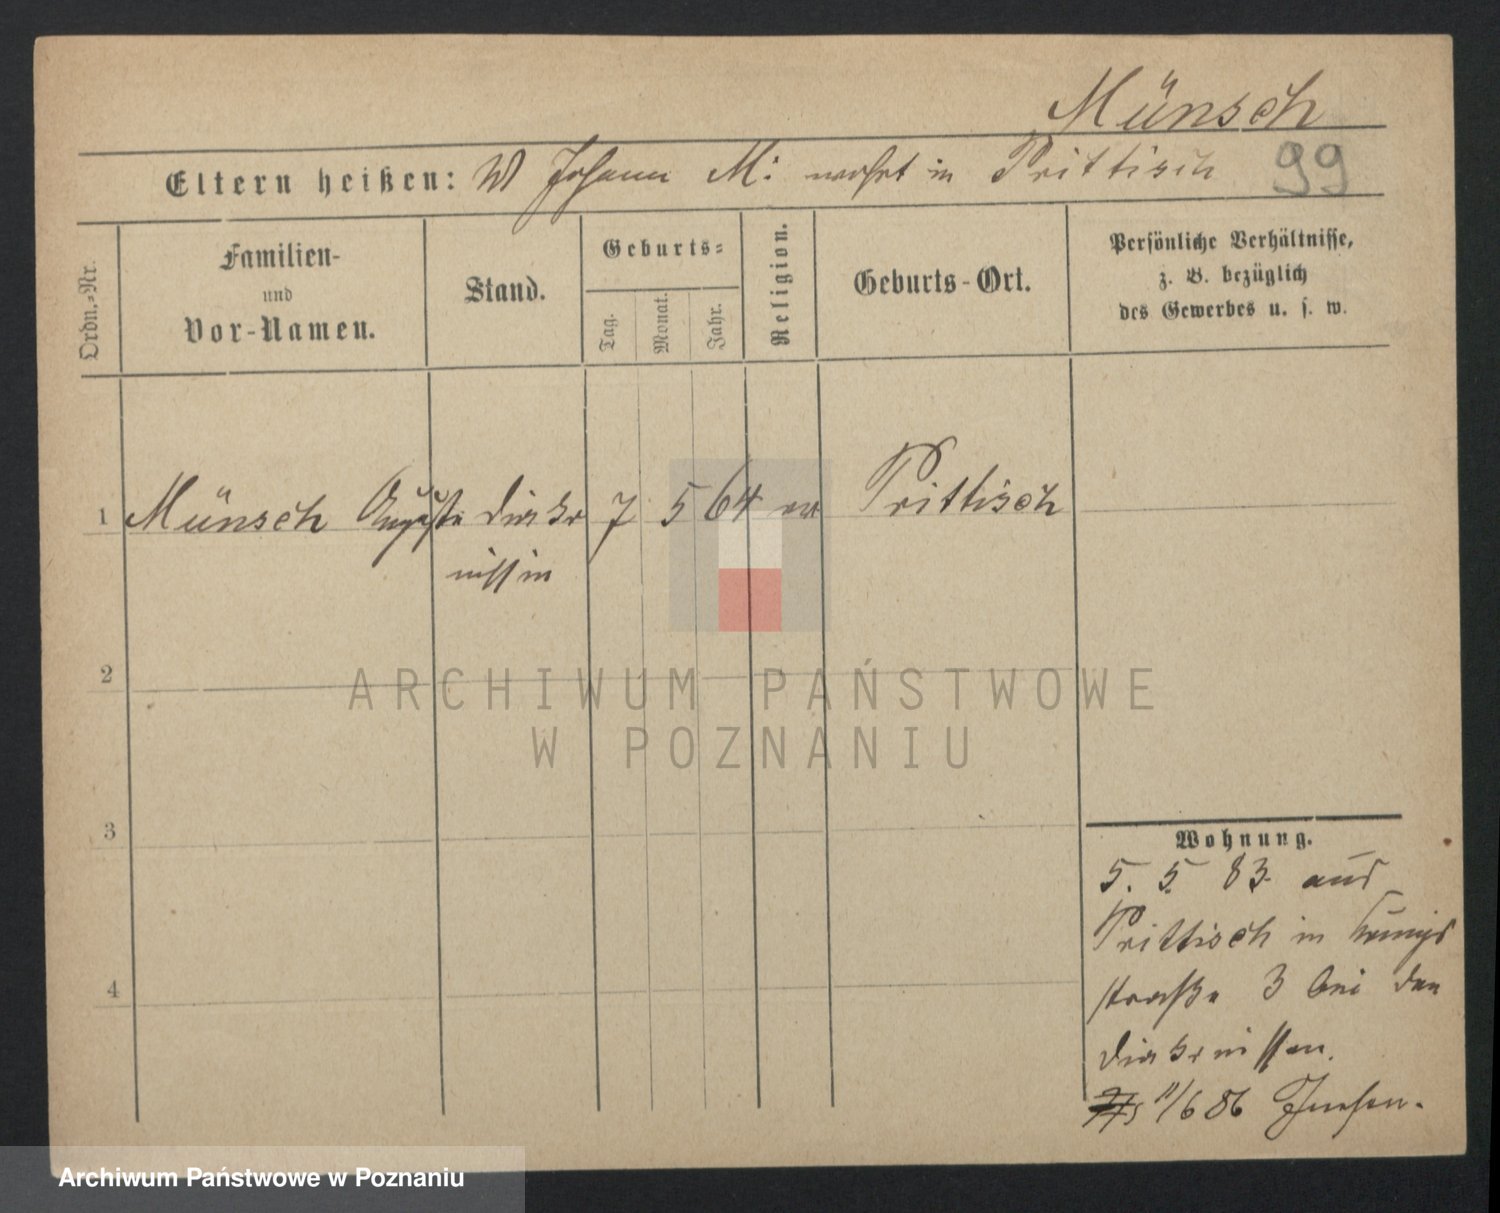 Münsch
Eltern heißen: W Johann M: wohnt in Prittisch 99
Ordn.-Nr.
Familien-
und
Vor-Namen.
Stand.
Geburts-
Tag.
Monat.
Jahr.
Religion.
Geburts-Ort.
Persönliche Verhältnisse,
z. B. bezüglich
des Gewerbes u. s. w.
1 Münsch Auguste Diako 7 5 64 ev Prittisch
nissin
2
3
4
Wohnung.
5. 5 83. aus
Prittisch in Königs
straße 3 bei den
Diakonissen.
11/6 86
ARCHIWUM PAŃSTWOWE
W POZNANIU
Archiwum Państwowe w Poznaniu